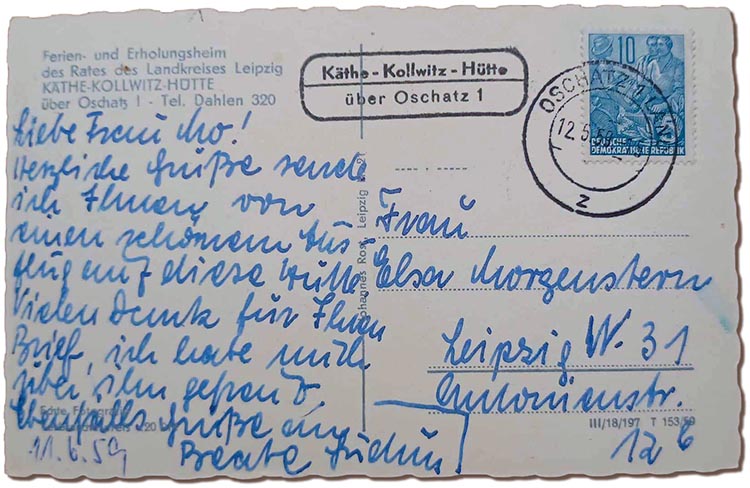 Ferien- und Erholungsheim
des Rates des Landkreises Leipzig
KÄTHE-KOLLWITZ-HÜTTE
über Oschatz 1 - Tel. Dahlen 320
Käthe-Kollwitz-Hütte
über Oschatz 1
10
DEUTSCHE
DEMOKRATISCHE REPUBLIK
OSCHATZ 1 LAND
12.5.59
z
Liebe Frau Mo!
Herzliche Grüße sende
ich Ihnen von
einen schönem Aus-
flug auf diese Hütte
Vielen Dank für Ihren
Brief, ich habe mich
über ihn gefreut.
Ebenfalls Grüße an
Beate
11.6.59
Echte Fotografie
Johannes Rost, Leipzig
Frau
Elsa Morgenstern
Leipzig W. 31
Antonienstr.
12 b
III/18/197 T 153/59